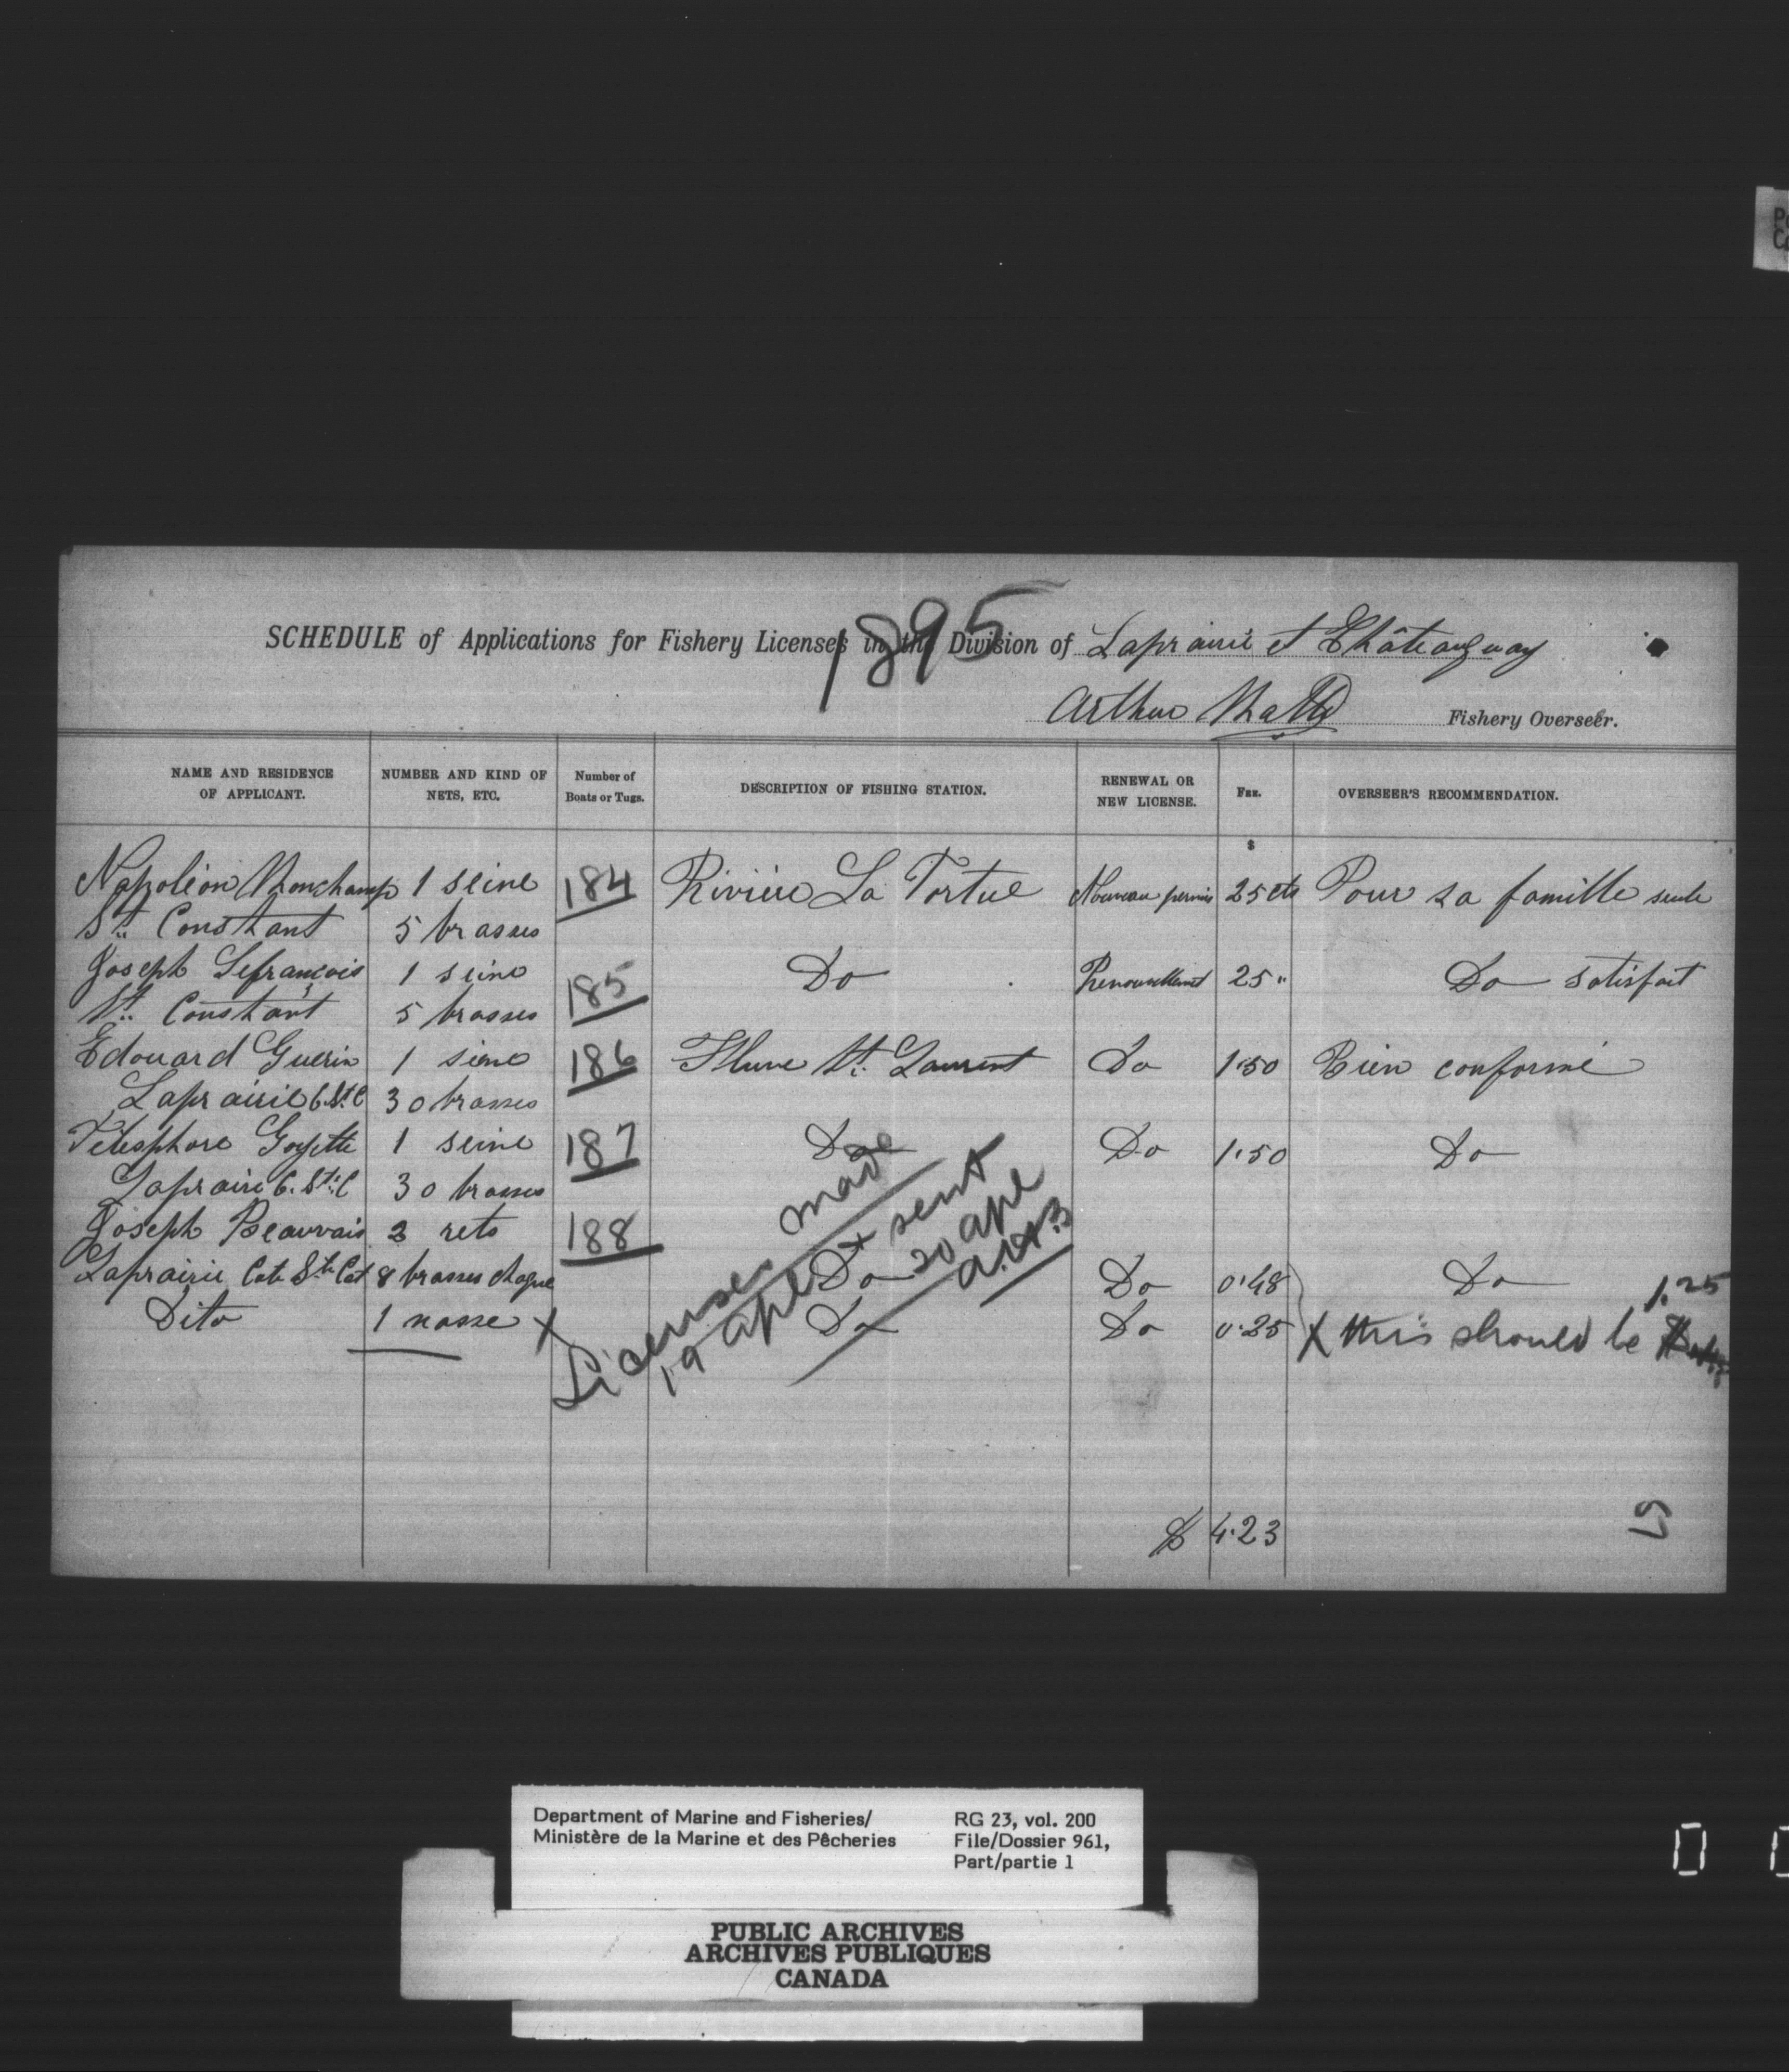 1895
SCHEDULE of Applications for Fishery Licenses in the Division of Laprairie et Châteauguay
Arthur Fishery Overseer.
NAME AND RESIDENCE OF APPLICANT. NUMBER AND KIND OF NETS, ETC. Number of Boats or Tugs. DESCRIPTION OF FISHING STATION. RENEWAL OR NEW LICENSE. FEE. OVERSEER'S RECOMMENDATION.
$
Napoléon Monchamp 1 seine 184 Rivière La Tortue Nouveau permis 25 cts Pour sa famille seule
St. Constant 5 brasses
Joseph Lefrançois 1 seine 185 Do Renouvellement 25 " Do satisfait
St. Constant 5 brasses
Edouard Guerin 1 siene 186 Fleuve St. Laurent Do 1.50 Bien conforme
Laprairie C. St. C 30 brasses
Télesphore Goyette 1 seine 187 Do Do 1.50 Do
Laprairie C. Ste C 30 brasses
Joseph Beauvais 2 rets 188
Laprairie Cote Ste Cat 8 brasses chaque Do Do 0.48 Do
Dito 1 nasse X Do Do 0.25 X this should be 1.25
Licenses made
19 apl & sent
20 apl
$ 4.23
19
Department of Marine and Fisheries/
Ministère de la Marine et des Pêcheries
RG 23, vol. 200
File/Dossier 961,
Part/partie 1
PUBLIC ARCHIVES
ARCHIVES PUBLIQUES
CANADA
0